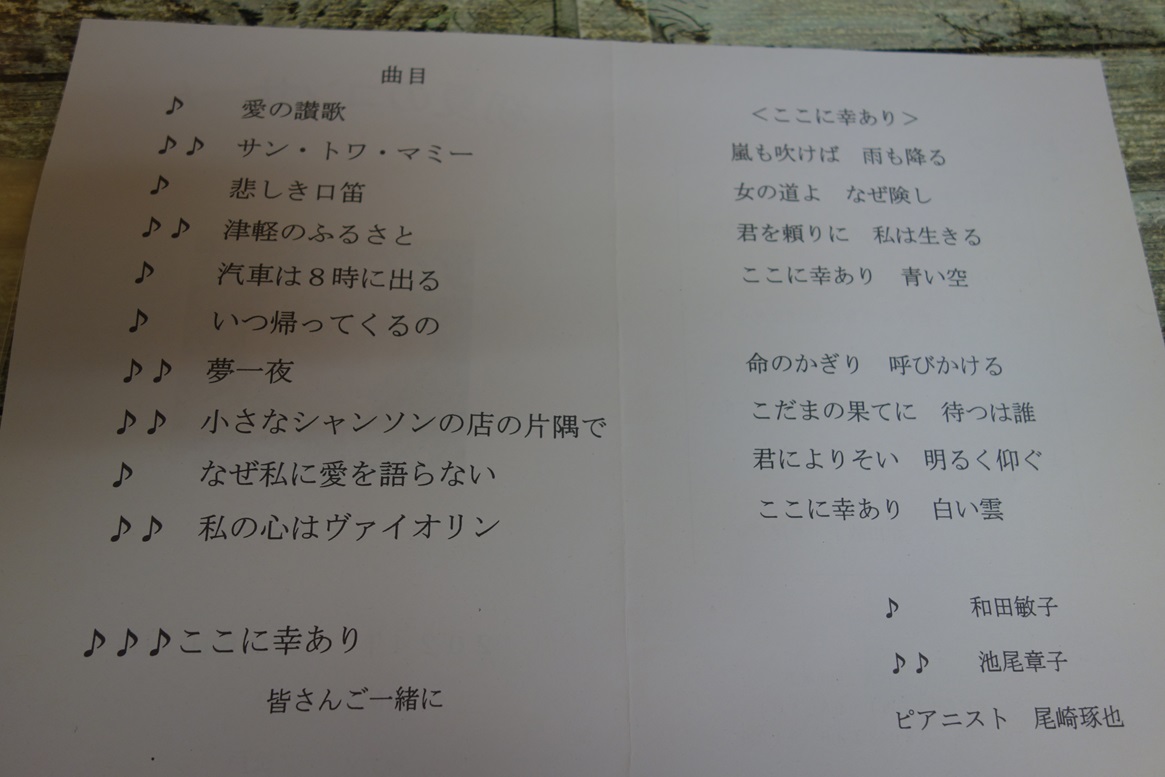 曲目
♪　愛の讃歌
♪♪　サン・トワ・マミー
♪　悲しき口笛
♪♪　津軽のふるさと
♪　汽車は８時に出る
♪　いつ帰ってくるの
♪♪　夢一夜
♪♪　小さなシャンソンの店の片隅で
♪　なぜ私に愛を語らない
♪♪　私の心はヴァイオリン
♪♪♪ここに幸あり
皆さんご一緒に
＜ここに幸あり＞
嵐も吹けば　雨も降る
女の道よ　なぜ険し
君を頼りに　私は生きる
ここに幸あり　青い空
命のかぎり　呼びかける
こだまの果てに　待つは誰
君によりそい　明るく仰ぐ
ここに幸あり　白い雲
♪　和田敏子
♪♪　池尾章子
ピアニスト　尾崎琢也